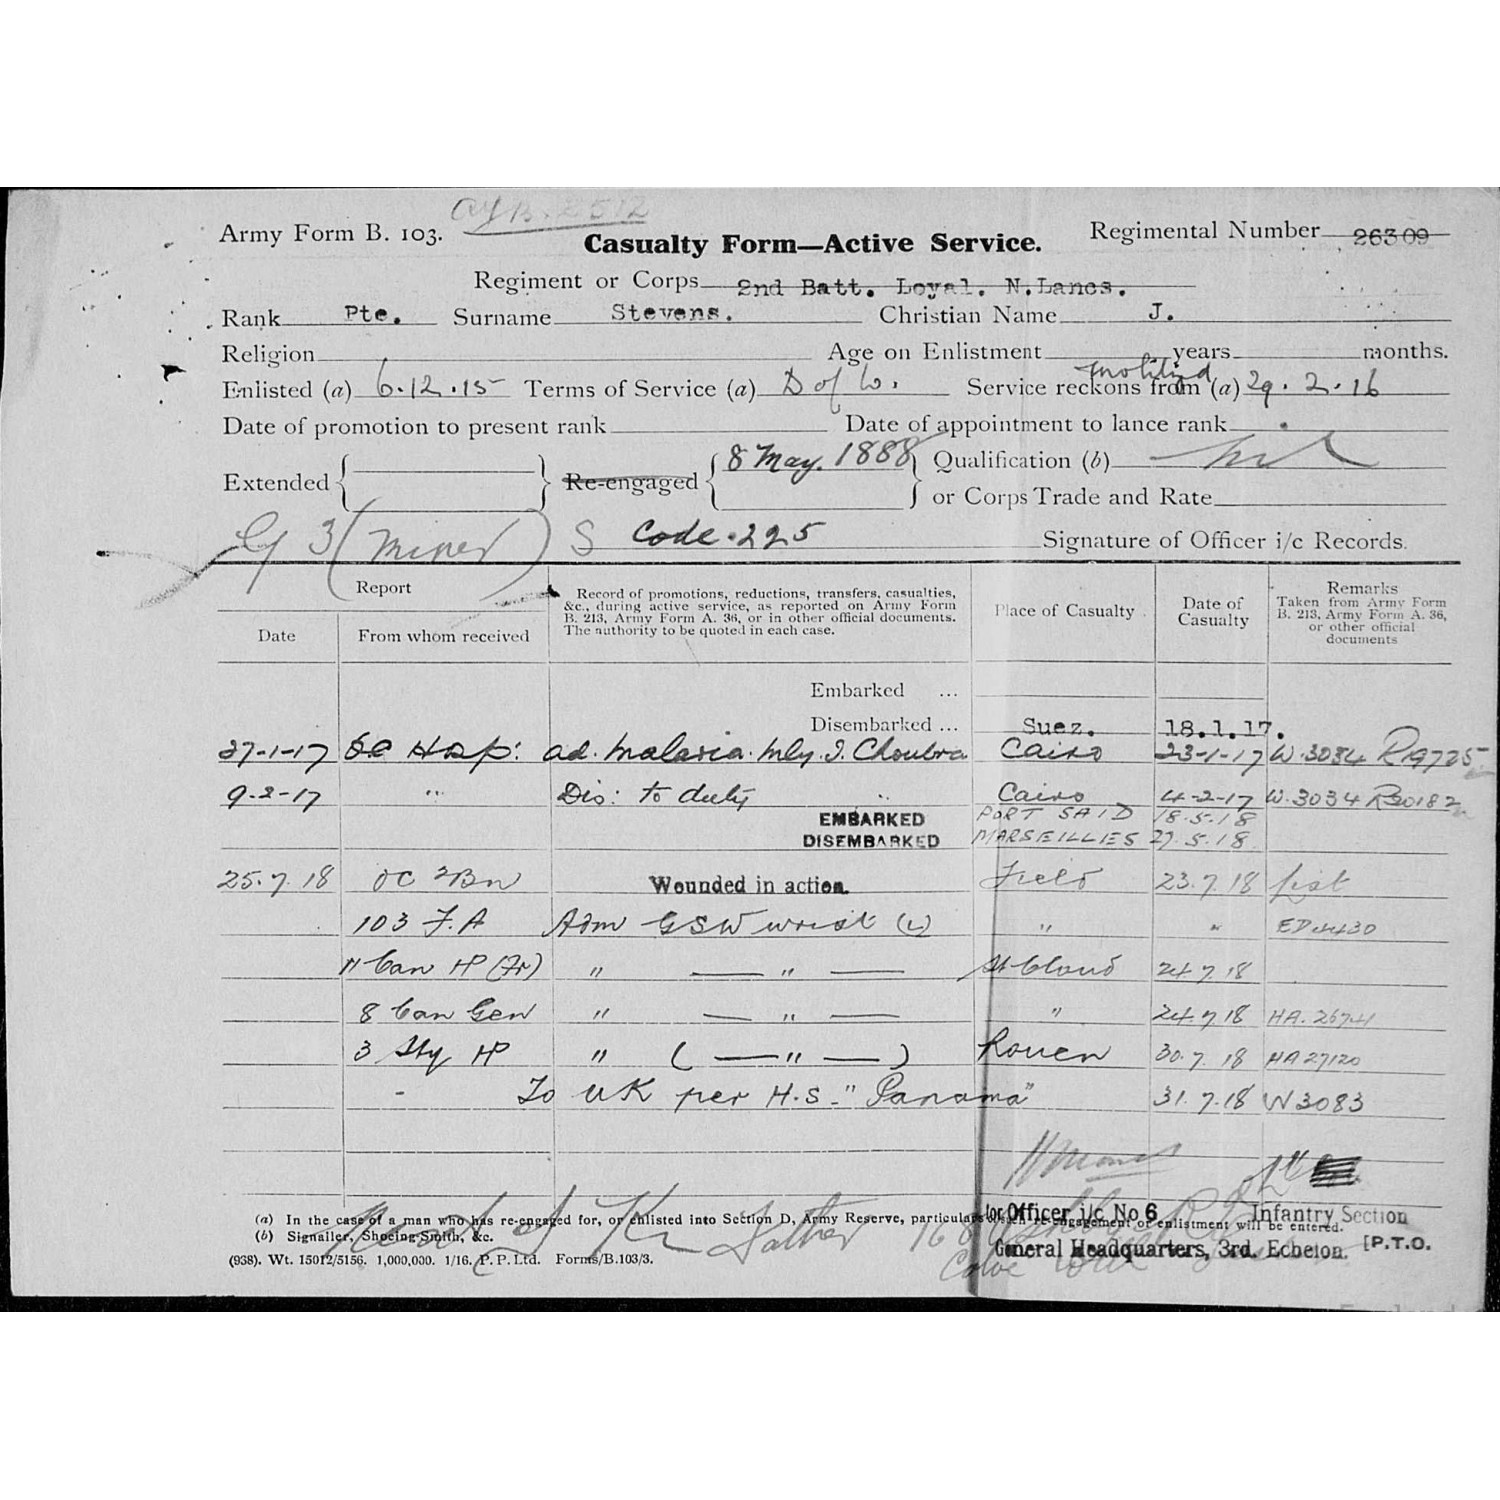 Army Form B. 103.
Casualty Form—Active Service.
Regimental Number 26309
Regiment or Corps 2nd Batt. Loyal. N.Lancs.
Rank Pte. Surname Stevens. Christian Name J.
Religion Age on Enlistment years months.
Enlisted (a) 6.12.15 Terms of Service (a) D of W. Service reckons from (a) 29.2.16
mobilized
Date of promotion to present rank Date of appointment to lance rank
Extended Re-engaged 8 May. 1888 Qualification (b)
or Corps Trade and Rate
G 3 (Miner) S Code.225 Signature of Officer i/c Records.
Report
Date From whom received
Record of promotions, reductions, transfers, casualties, &c., during active service, as reported on Army Form B. 213, Army Form A. 36, or in other official documents. The authority to be quoted in each case.
Place of Casualty
Date of Casualty
Remarks Taken from Army Form B. 213, Army Form A. 36, or other official documents
Embarked ...
Disembarked ... Suez. 18.1.17.
27-1-17 Hosp: ad. Malaria. Mly. I. Choubra Cairo 23-1-17 W.3034 R19725
9-2-17 " Dis: to duty " Cairo 4-2-17 W.3034 R20182
EMBARKED PORT SAID 18.5.18
DISEMBARKED MARSEILLIES 27.5.18
25.7.18 OC 2Bn Wounded in action. Field 23.7.18 list
103 F.A Adm GSW wrist (L) " " ED4430
11 Can H (Fr) " — " — St Cloud 24.7.18
8 Can Gen " — " — " 24.7.18 HA.26741
3 Sty H " ( — " — ) Rouen 30.7.18 HA27120
- To UK per H.S. "Panama" 31.7.18 W3083
for Officer i/c No 6 Infantry Section
(a) In the case of a man who has re-engaged for, or enlisted into Section D, Army Reserve, particulars of such re-engagement or enlistment will be entered.
(b) Signaller, Shoeing Smith, &c.
General Headquarters, 3rd. Echelon. [P.T.O.
(938). Wt. 15012/5156. 1,000,000. 1/16. P. P. Ltd. Forms/B.103/3.
Next of Kin Father